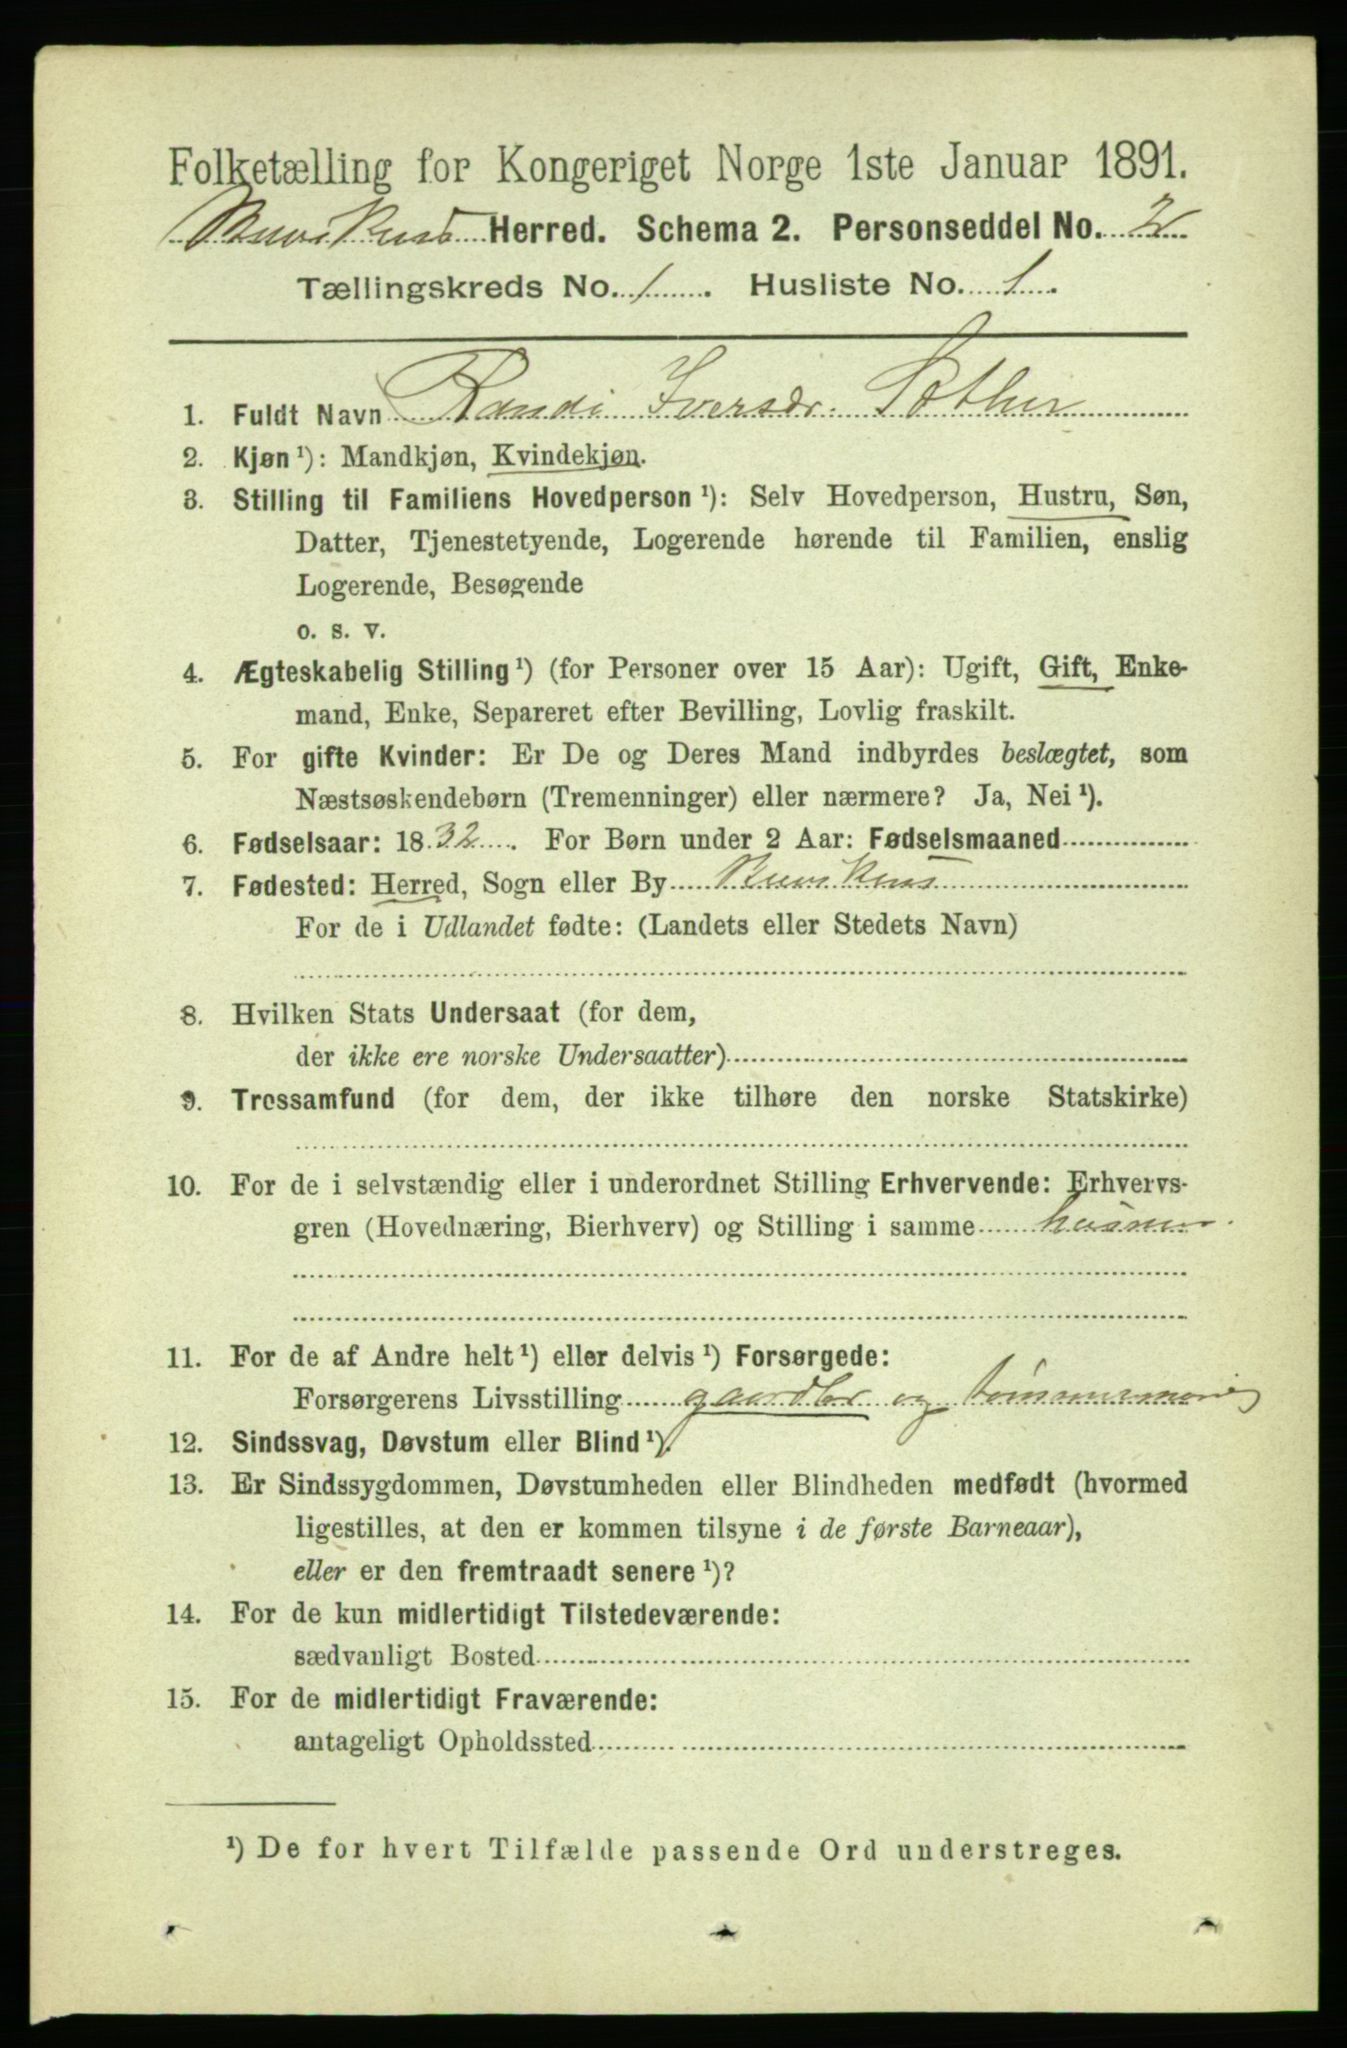 Folketælling for Kongeriget Norge 1ste Januar 1891.
Herred. Schema 2. Personseddel No. 2
Tællingskreds No. 1. Husliste No. 1.
1. Fuldt Navn Randi Iversdr. Sæther
2. Kjøn¹): Mandkjøn, Kvindekjøn.
3. Stilling til Familiens Hovedperson¹): Selv Hovedperson, Hustru, Søn,
Datter, Tjenestetyende, Logerende hørende til Familien, enslig
Logerende, Besøgende
o. s. v.
4. Ægteskabelig Stilling¹) (for Personer over 15 Aar): Ugift, Gift, Enke-
mand, Enke, Separeret efter Bevilling, Lovlig fraskilt.
5. For gifte Kvinder: Er De og Deres Mand indbyrdes beslægtet, som
Næstsøskendebørn (Tremenninger) eller nærmere? Ja, Nei¹).
6. Fødselsaar: 1832. For Børn under 2 Aar: Fødselsmaaned
7. Fødested: Herred, Sogn eller By
For de i Udlandet fødte: (Landets eller Stedets Navn)
8. Hvilken Stats Undersaat (for dem,
der ikke ere norske Undersaatter)
9. Trossamfund (for dem, der ikke tilhøre den norske Statskirke)
10. For de i selvstændig eller i underordnet Stilling Erhvervende: Erhvervs-
gren (Hovednæring, Bierhverv) og Stilling i samme
11. For de af Andre helt¹) eller delvis¹) Forsørgede:
Forsørgerens Livsstilling gaardbr og tømmermand
12. Sindssvag, Døvstum eller Blind¹).
13. Er Sindssygdommen, Døvstumheden eller Blindheden medfødt (hvormed
ligestilles, at den er kommen tilsyne i de første Barneaar),
eller er den fremtraadt senere¹)?
14. For de kun midlertidigt Tilstedeværende:
sædvanligt Bosted
15. For de midlertidigt Fraværende:
antageligt Opholdssted
¹) De for hvert Tilfælde passende Ord understreges.